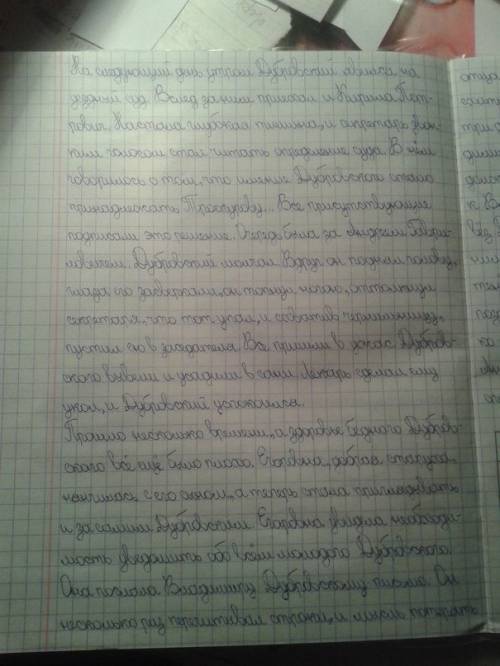 На следующий день утром Дубровский явился на
уездный суд. Вслед за ним приехал и Кирила Пет-
рович. Настала глубокая тишина, и секретарь звон-
ким голосом стал читать определение суда. В нём
говорилось о том, что имение Дубровского стало
принадлежать Троекурову... Все присутствующие
подписали это решение. Очередь была за Андреем Гаври-
ловичем. Дубровский молчал. Вдруг он поднял голову,
глаза его засверкали, он топнул ногою, оттолкнул
секретаря, что тот упал, и схватив чернильницу,
пустил ею в заседателя. Все пришли в ужас. Дубров-
ского вывели и усадили в сани. Лекарь сделал ему
укол, и Дубровский успокоился.
Прошло несколько времени, а здоровье бедного Дубров-
ского всё ещё было плохо. Егоровна, добрая старуха,
нянчилась с его сыном, а теперь стала приглядывать
и за самим Дубровским. Егоровна увидела необходи-
мость уведомить обо всём молодого Дубровского.
Она послала Владимиру Дубровскому письмо. Он
несколько раз перечитывал строки, и мысль потерять